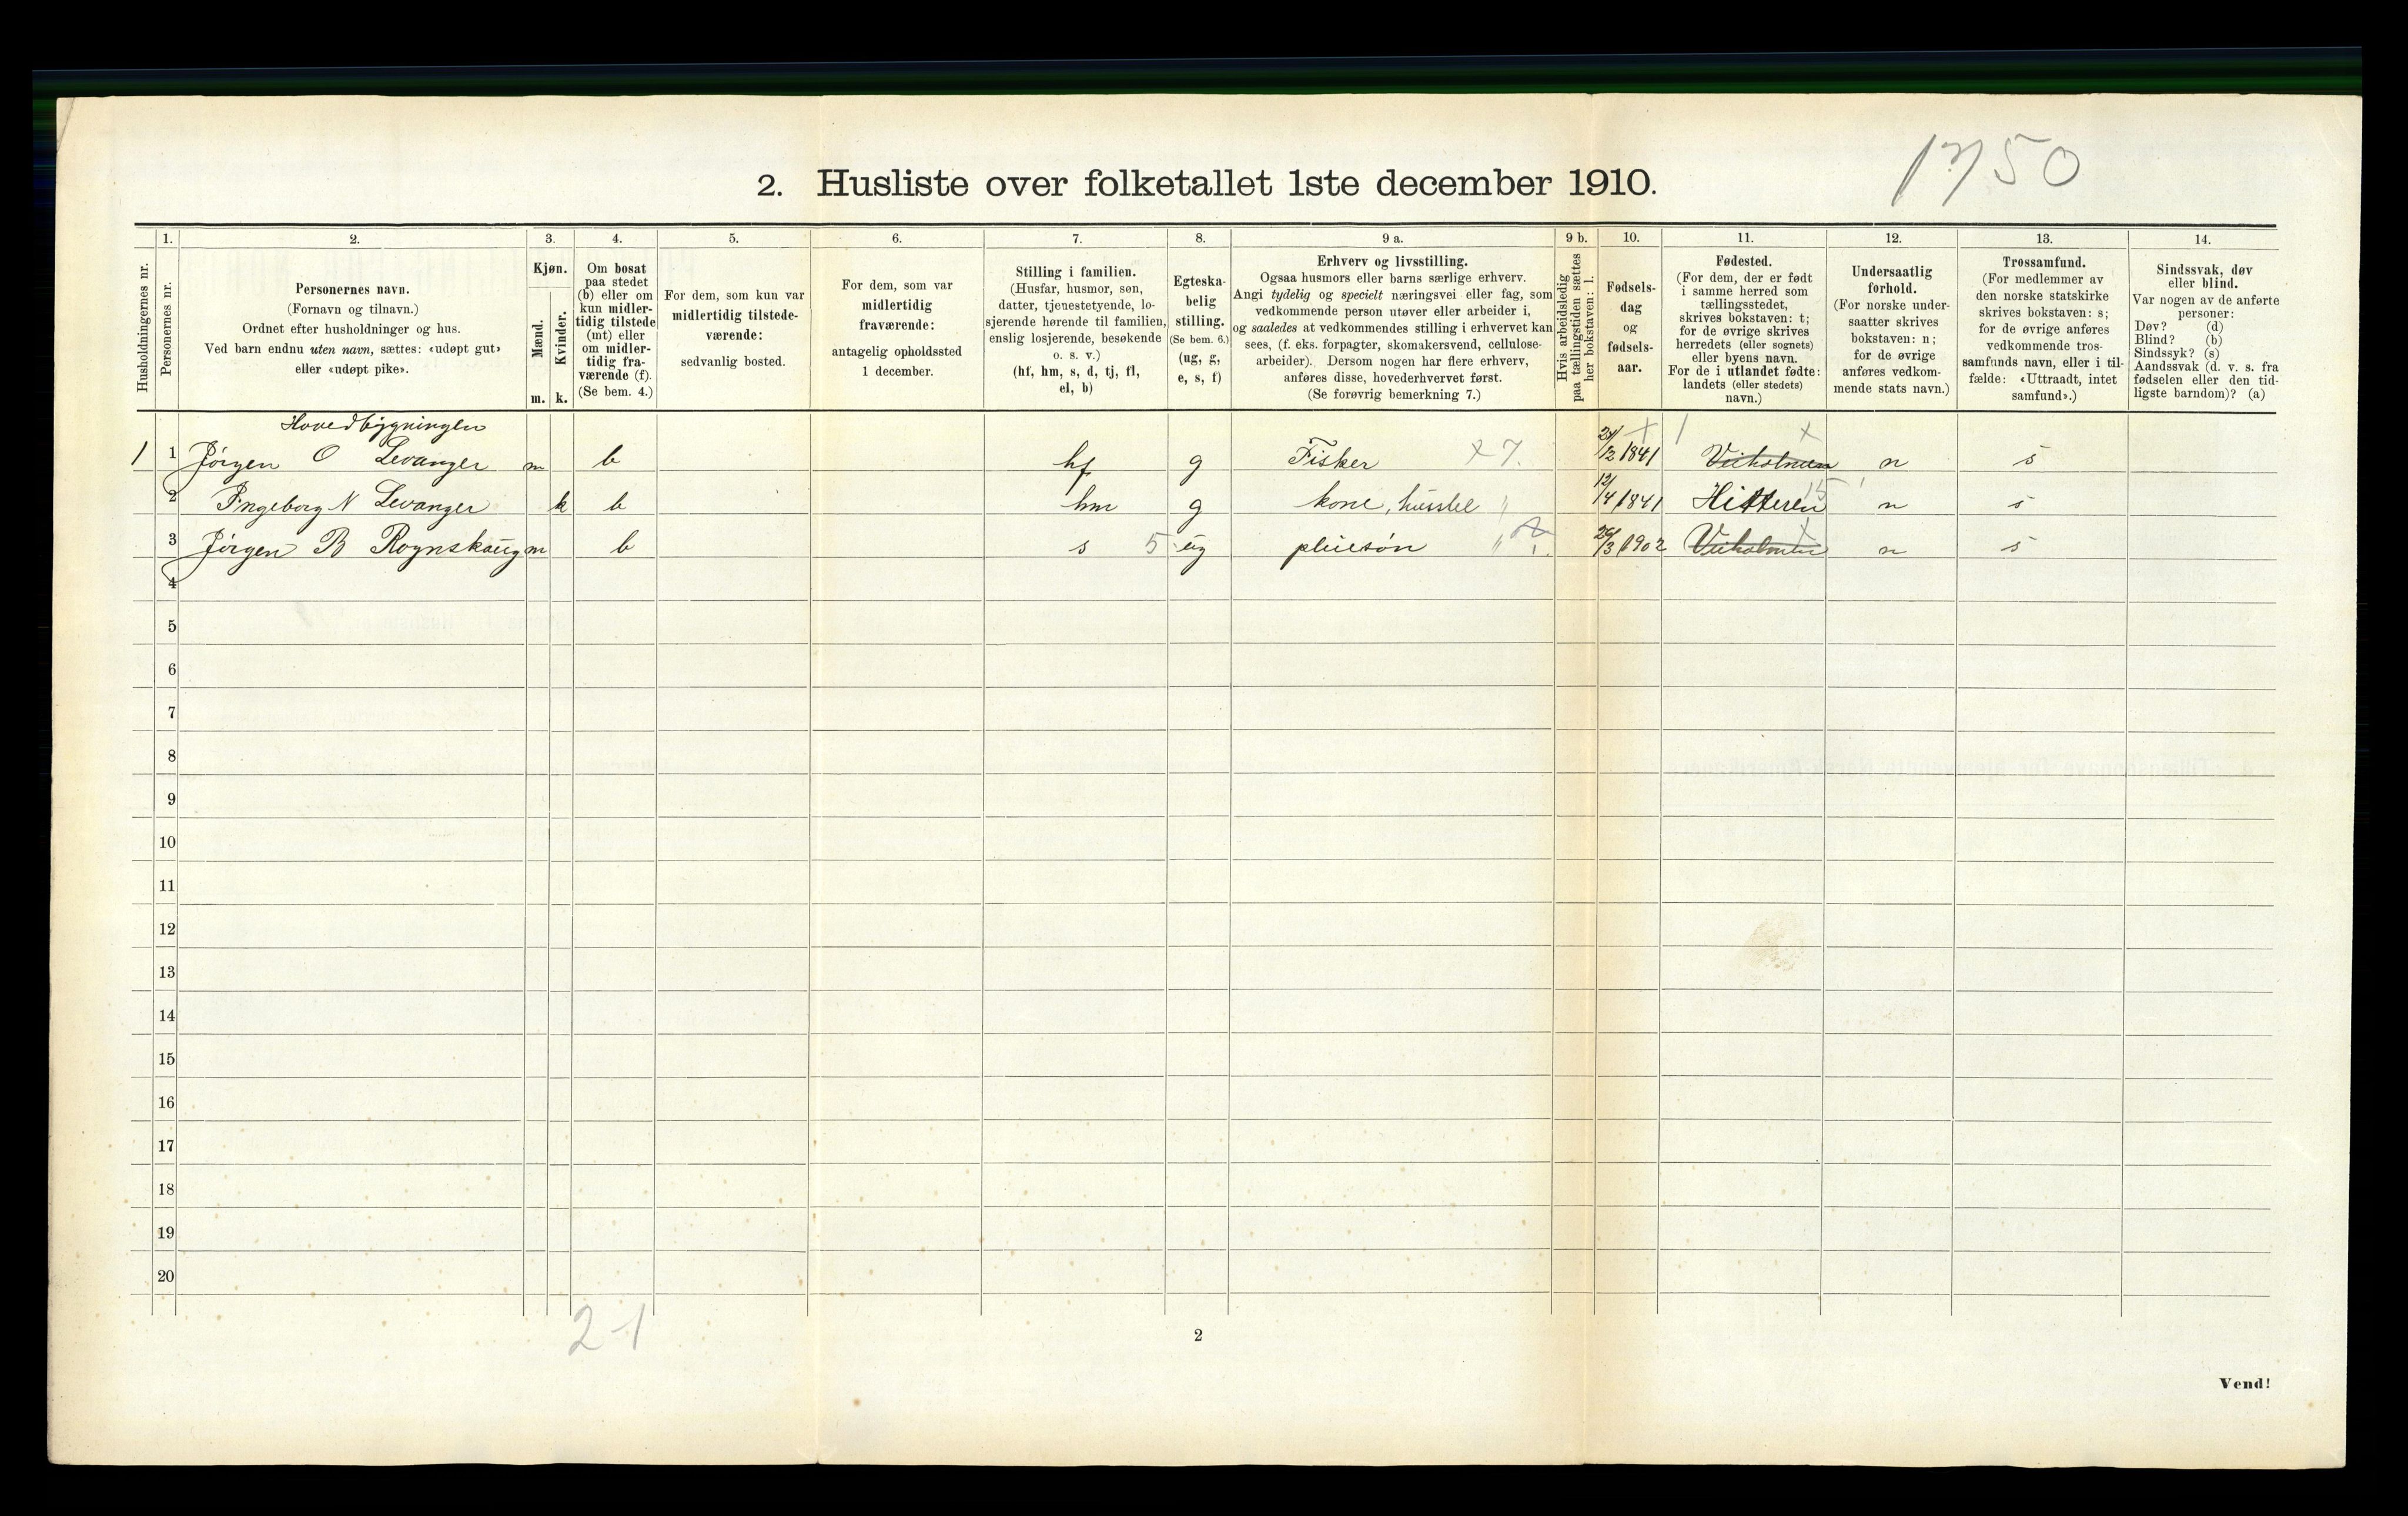 1750
2. Husliste over folketallet 1ste december 1910.
Husholdningernes nr.
1.
Personernes nr.
2.
Personernes navn.
(Fornavn og tilnavn.)
Ordnet efter husholdninger og hus.
Ved barn endnu uten navn, sættes: «udøpt gut»
eller «udøpt pike».
3.
Kjøn.
Mænd.
Kvinder.
m. k.
4.
Om bosat
paa stedet
(b) eller om
kun midler-
tidig tilstede
(mt) eller
om midler-
tidig fra-
værende (f).
(Se bem. 4.)
5.
For dem, som kun var
midlertidig tilstede-
værende:
sedvanlig bosted.
6.
For dem, som var
midlertidig
fraværende:
antagelig opholdssted
1 december.
7.
Stilling i familien.
(Husfar, husmor, søn,
datter, tjenestetyende, lo-
sjerende hørende til familien,
enslig losjerende, besøkende
o. s. v.)
(hf, hm, s, d, tj, fl,
el, b)
8.
Egteska-
belig
stilling.
(Se bem. 6.)
(ug, g,
e, s, f)
9 a.
Erhverv og livsstilling.
Ogsaa husmors eller barns særlige erhverv.
Angi tydelig og specielt næringsvei eller fag, som
vedkommende person utøver eller arbeider i,
og saaledes at vedkommendes stilling i erhvervet kan
sees, (f. eks. forpagter, skomakersvend, cellulose-
arbeider). Dersom nogen har flere erhverv,
anføres disse, hovederhvervet først.
(Se forøvrig bemerkning 7.)
9 b.
Hvis arbeidsledig
paa tællingstiden sættes
her bokstaven: l.
10.
Fødsels-
dag
og
fødsels-
aar.
11.
Fødested.
(For dem, der er født
i samme herred som
tællingsstedet,
skrives bokstaven: t;
for de øvrige skrives
herredets (eller sognets)
eller byens navn.
For de i utlandet fødte:
landets (eller stedets)
navn.)
12.
Undersaatlig
forhold.
(For norske under-
saatter skrives
bokstaven: n;
for de øvrige
anføres vedkom-
mende stats navn.)
13.
Trossamfund.
(For medlemmer av
den norske statskirke
skrives bokstaven: s;
for de øvrige anføres
vedkommende tros-
samfunds navn, eller i til-
fælde: «Uttraadt, intet
samfund».)
14.
Sindssvak, døv
eller blind.
Var nogen av de anførte
personer:
Døv? (d)
Blind? (b)
Sindssyk? (s)
Aandssvak (d. v. s. fra
fødselen eller den tid-
ligste barndom)? (a)
Hovedbygningen
1 1 Jörgen O Levanger m b hf g Fisker x 7. 1841 x n s
2 Ingeborg N Levanger k b hm g kone, husstel " 12/4 1841 Hitteren 15 n s
3 Jörgen B Rognskaug m b s 5 ug pleiesön " 26/3 1902 x n s
4
5
6
7
8
9
10
11
12
13
14
15
16
17
18
19
20
2-1
2
Vend!